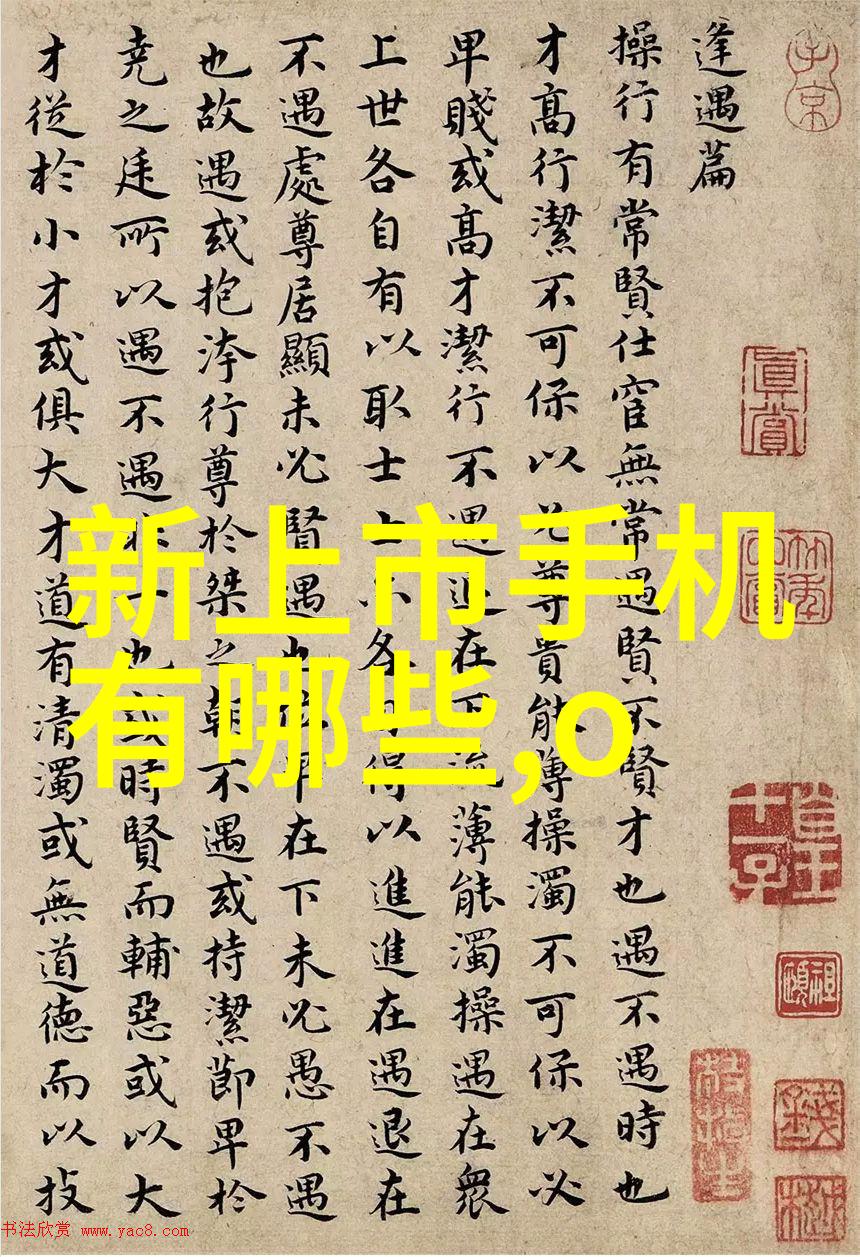 逢遇篇
操行有常賢仕宦無常遇賢不賢才也遇不遇時也
才高行潔不可保以必尊貴能薄操濁不可保以必
卑賤或高才潔行不遇退在下流薄能濁操遇在衆
上世各自有以取士士亦各自得以進進在遇退在
不遇處尊居顯未必賢遇也位卑在下未必愚不遇
也故遇或抱洿行尊於桀之朝不遇或持潔節卑於
尭之廷所以遇不遇非一也或時賢而輔惡或以大
才從於小才或俱大才道有清濁或無道德而以技
子京
真賞
新上市手机
有哪些,o
书法欣赏 www.yac8.com